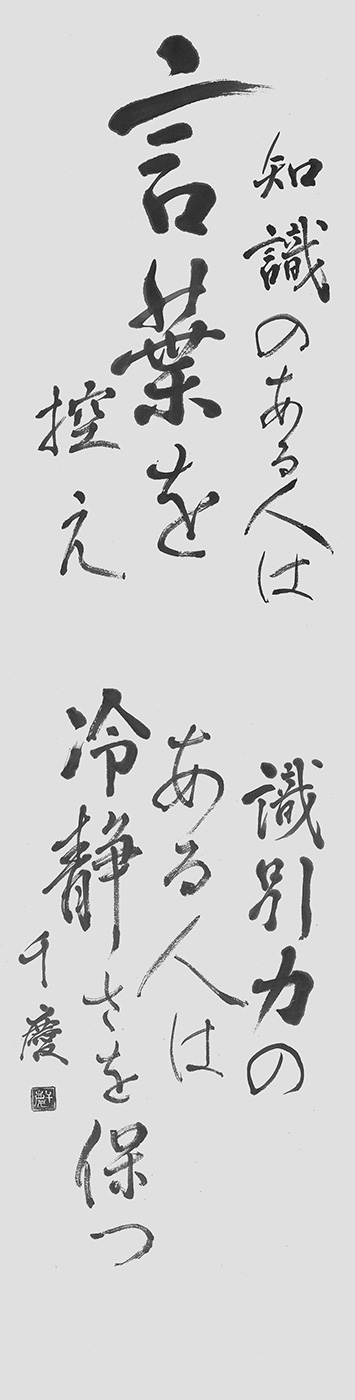 知識のある人は
言葉を
控え
識別力の
ある人は
冷静さを保つ
千慶